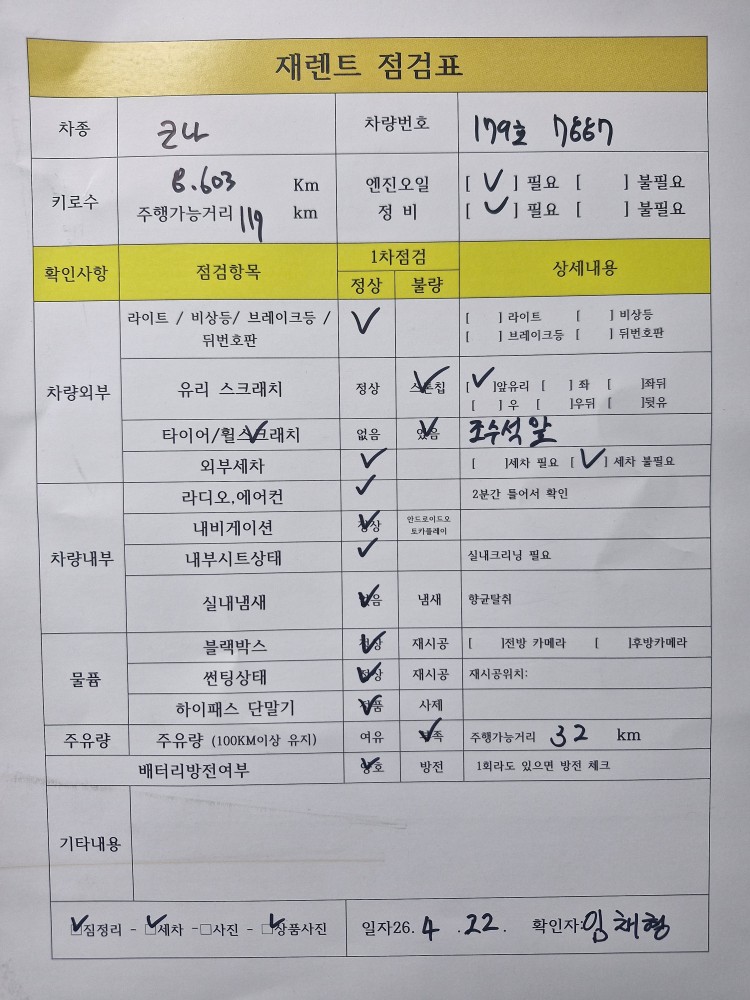 재렌트 점검표
차종 코나 차량번호 179호 7887
키로수 8.603 Km 엔진오일 [ ✓ ] 필요 [ ] 불필요
주행가능거리 119 km 정 비 [ ✓ ] 필요 [ ] 불필요
확인사항 점검항목 1차점검 상세내용
정상 불량
차량외부
라이트 / 비상등/ 브레이크등 / 뒤번호판 ✓ [ ] 라이트 [ ] 비상등
[ ] 브레이크등 [ ] 뒤번호판
유리 스크래치 정상 스톤칩 ✓ [ ✓ ]앞유리 [ ] 좌 [ ]좌뒤
[ ] 우 [ ]우뒤 [ ]뒷유
타이어/휠스크래치 ✓ 없음 있음 ✓ 조수석 앞
외부세차 ✓ [ ]세차 필요 [ ✓ ] 세차 불필요
차량내부
라디오,에어컨 ✓ 2분간 틀어서 확인
내비게이션 정상 ✓ 안드로이드오
토카플레이
내부시트상태 ✓ 실내크리닝 필요
실내냄새 없음 ✓ 냄새 향균탈취
물품
블랙박스 정상 ✓ 재시공 [ ]전방 카메라 [ ]후방카메라
썬팅상태 정상 ✓ 재시공 재시공위치:
하이패스 단말기 정품 ✓ 사제
주유량 주유량 (100KM이상 유지) 여유 부족 ✓ 주행가능거리 32 km
배터리방전여부 양호 ✓ 방전 1회라도 있으면 방전 체크
기타내용
☑짐정리 - ☑세차 -□사진 - ☑상품사진 일자26. 4 .22. 확인자:임채형